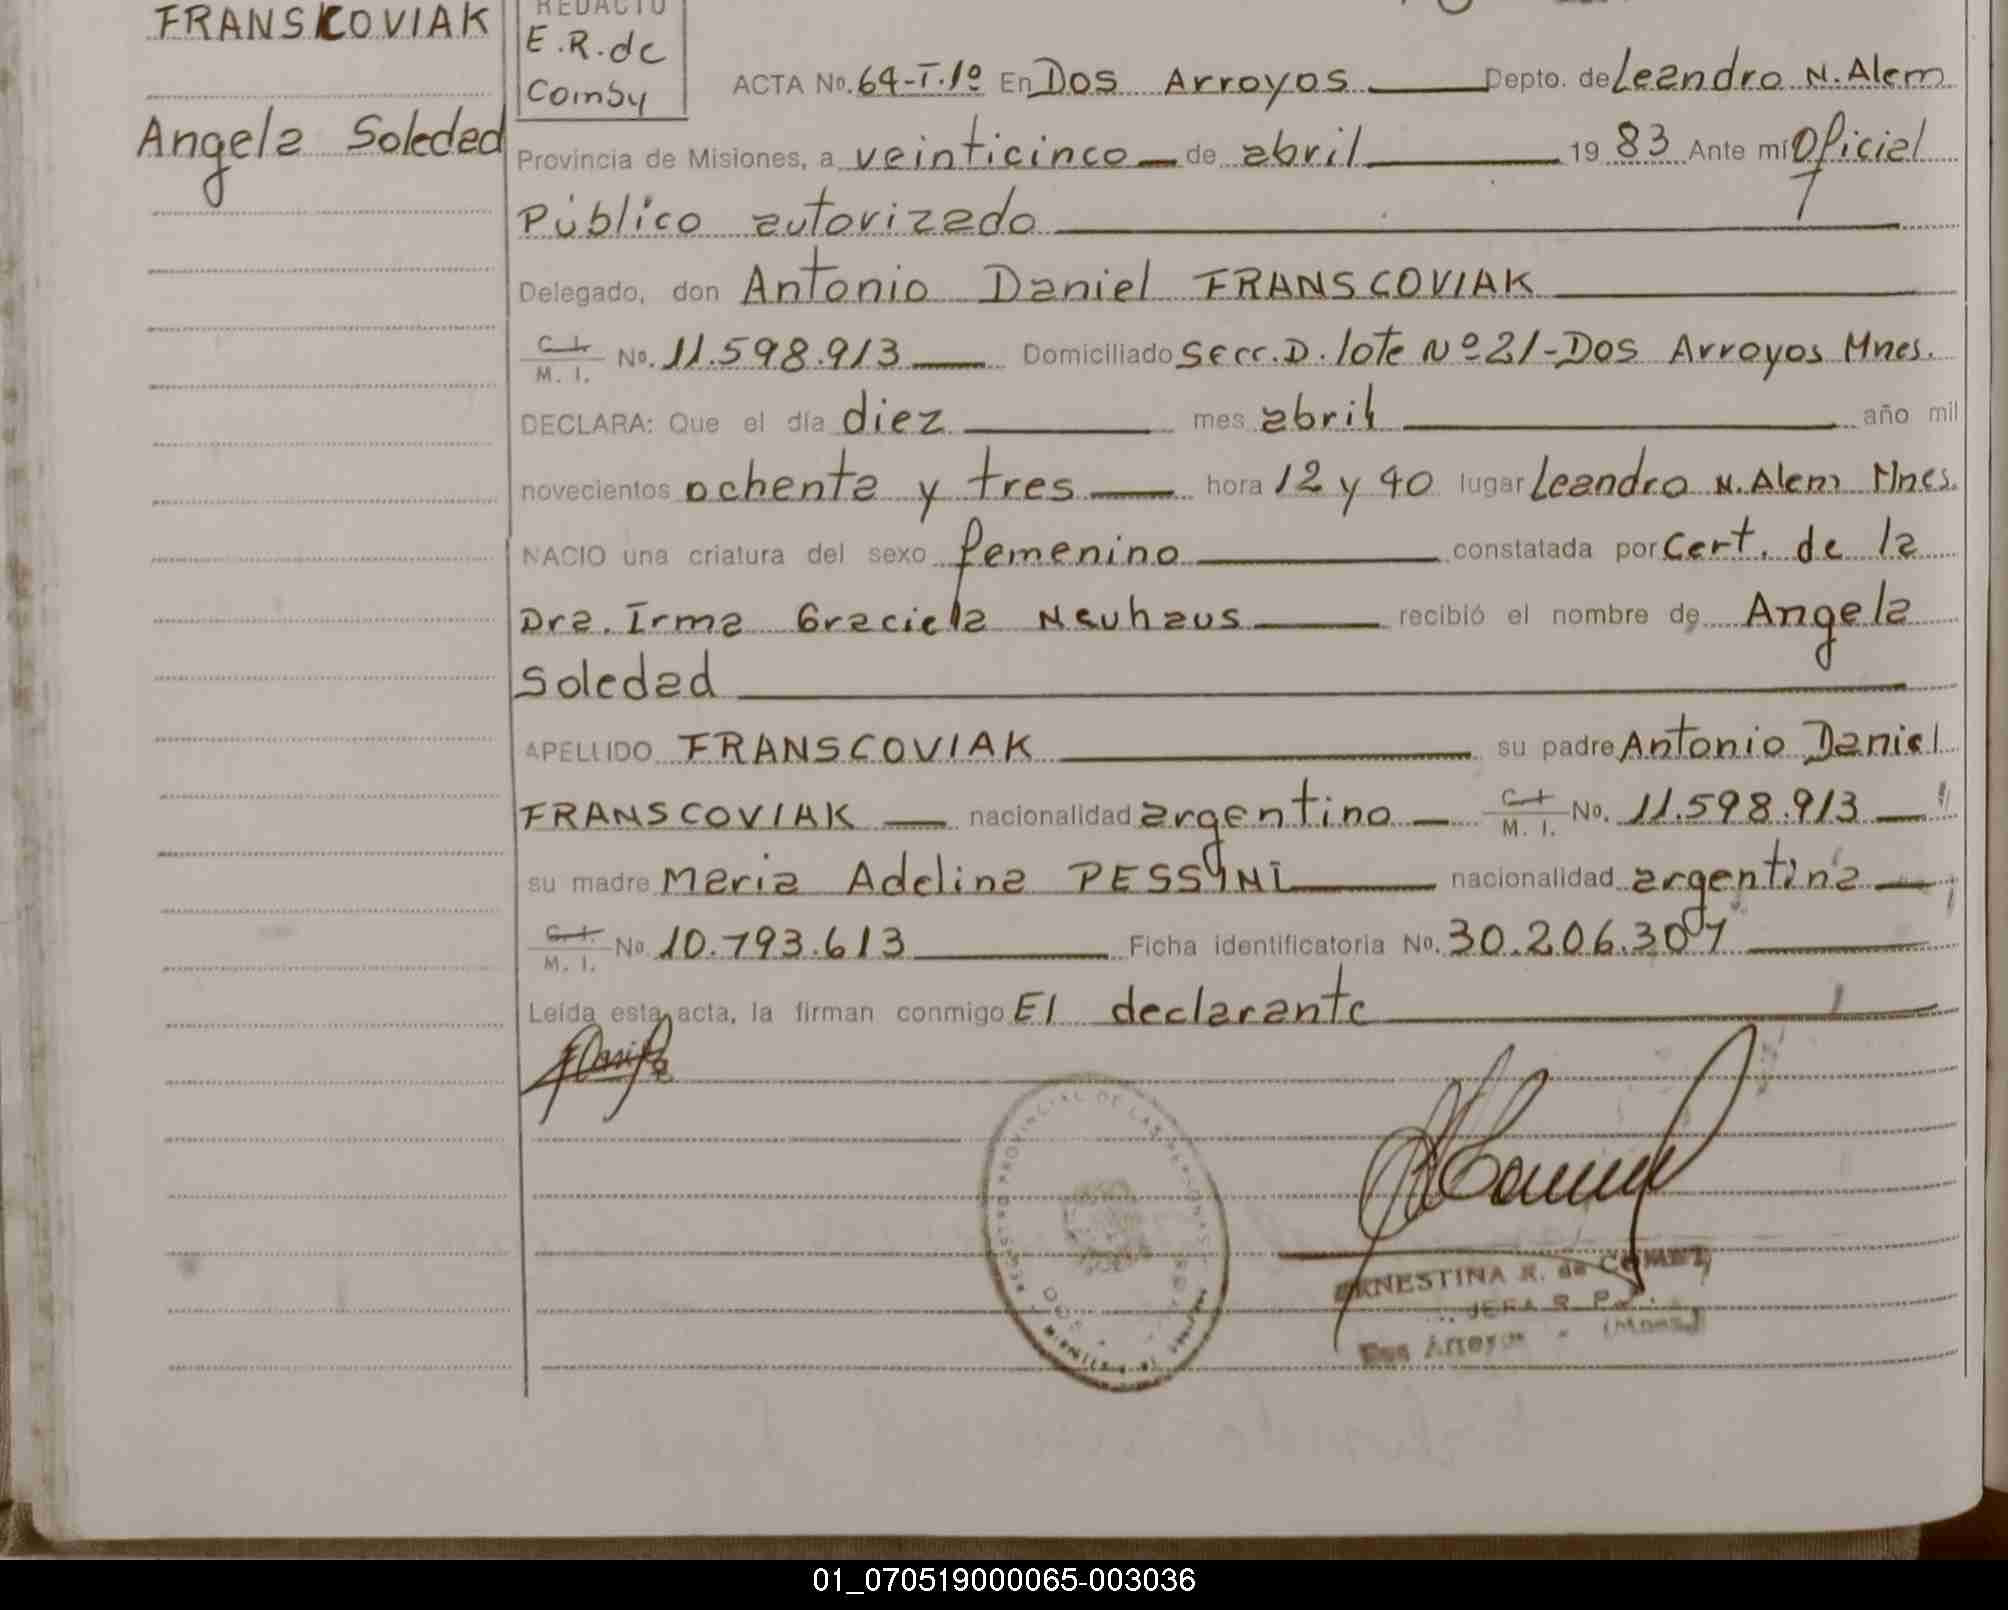 FRANSCOVIAK
Angela Soledad
REDACTO
E.R. de
Comby
ACTA No. 64-T.1º En Dos Arroyos Depto. de Leandro N. Alem
Provincia de Misiones, a veinticinco de abril 19 83 Ante mí Oficial
Público autorizado
Delegado, don Antonio Daniel FRANSCOVIAK
C. I. M. I. No. 11.598.913 Domiciliado Secc. D. lote Nº 21-Dos Arroyos Mnes.
DECLARA: Que el día diez mes abril año mil
novecientos ochenta y tres hora 12 y 40 lugar Leandro N. Alem Mnes.
NACIO una criatura del sexo femenino constatada por Cert. de la
Dra. Irma Graciela Neuhaus recibió el nombre de Angela
Soledad
APELLIDO FRANSCOVIAK su padre Antonio Daniel
FRANSCOVIAK nacionalidad argentino C. I. M. I. No. 11.598.913
su madre Maria Adelina PESSINI nacionalidad argentina
C. I. M. I. No 10.793.613 Ficha identificatoria No. 30.206.307
Leída esta acta, la firman conmigo El declarante
REGISTRO PROVINCIAL DE LAS PERSONAS
ERNESTINA R. de COMBY
JEFA R. P.
Dos Arroyos - (Mnes.)
01_070519000065-003036